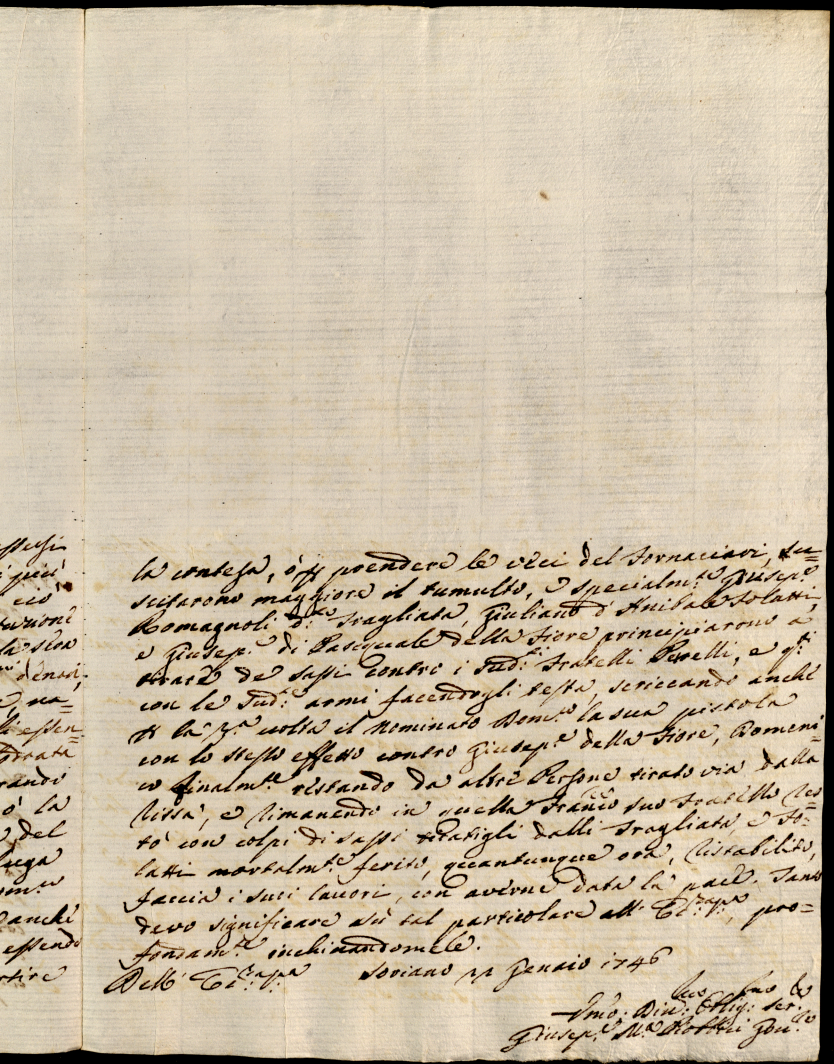 essersi
più
ciò
la sera
ò la
del
fuga
anche
essendo
la contesa, ò p prendere le veci del Fornaciari, su=
scitarono maggiore il tumulto, e specialm.te Giusep.e
Romagnoli d.o Fragliata, Giuliano d'Anibale Solatti
e Giusep.e di Pasquale della Fiore principiarono a
tirare de sassi contro i Sud.i Fratelli Perelli, e q.ti
con le Sud.e armi facendogli testa, scriccando anche
p la p.a volta il Nominato Dom.co la sua pistola
con lo stesso effetto contro Giusep.e della Fiore, Domeni=
co finalm.te restando da altre Persone tirato via dalla
rissa, e rimanendo in quella Fran.co suo Fratello res=
tò con colpi di sassi tiratigli dalli Fragliata, e So=
latti mortalm.te ferito, quantunque ora, ristabilito,
faccia i suoi lavori, con averne data la pace. Tanto
devo significare sù tal particolare all'
pro=
fondam.te inchinandomele.
Dell'
Soriano Genaio 1746
Giusep.e M.a